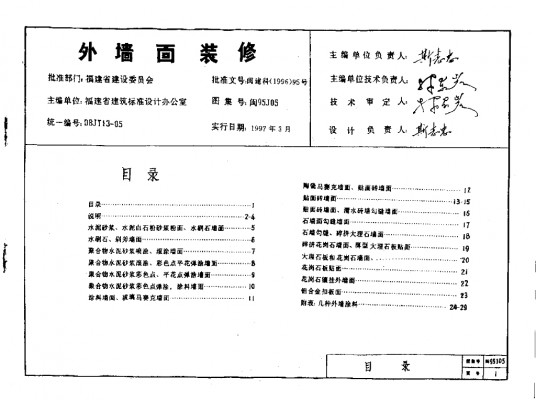 外墙面装修
批准部门：福建省建设委员会
批准文号：闽建科(1996)95号
主编单位：福建省建筑标准设计办公室
图集号：闽95J05
统一编号：DBJT13-05
实行日期：1997年3月
主编单位负责人：
主编单位技术负责人：
技术审定人：
设计负责人：
目录
目录 1
说明 2-4
水泥砂浆、水泥白石粉砂浆粉面、水刷石墙面 5
水刷石、剁斧墙面 6
聚合物水泥砂浆喷涂、滚涂墙面 7
聚合物水泥砂浆滚涂、彩色点平花弹涂墙面 8
聚合物水泥砂浆彩色点、平花点弹涂墙面 9
聚合物水泥砂浆彩色点弹涂、涂料墙面 10
涂料墙面、玻璃马赛克墙面 11
陶瓷马赛克墙面、贴面砖墙面 12
贴面砖墙面 13-15
贴面砖墙面、清水砖墙勾缝墙面 16
石墙面勾缝墙面 17
石墙勾缝、碎拼大理石墙面 18
碎拼花岗石墙面、薄型大理石板贴面 19
大理石板和花岗石墙面 20
花岗石板贴面 21
花岗石镶挂外墙面 22
铝合金扣板面 23
附表：几种外墙涂料 24-29
目录
图集号 闽95J05
页号 1